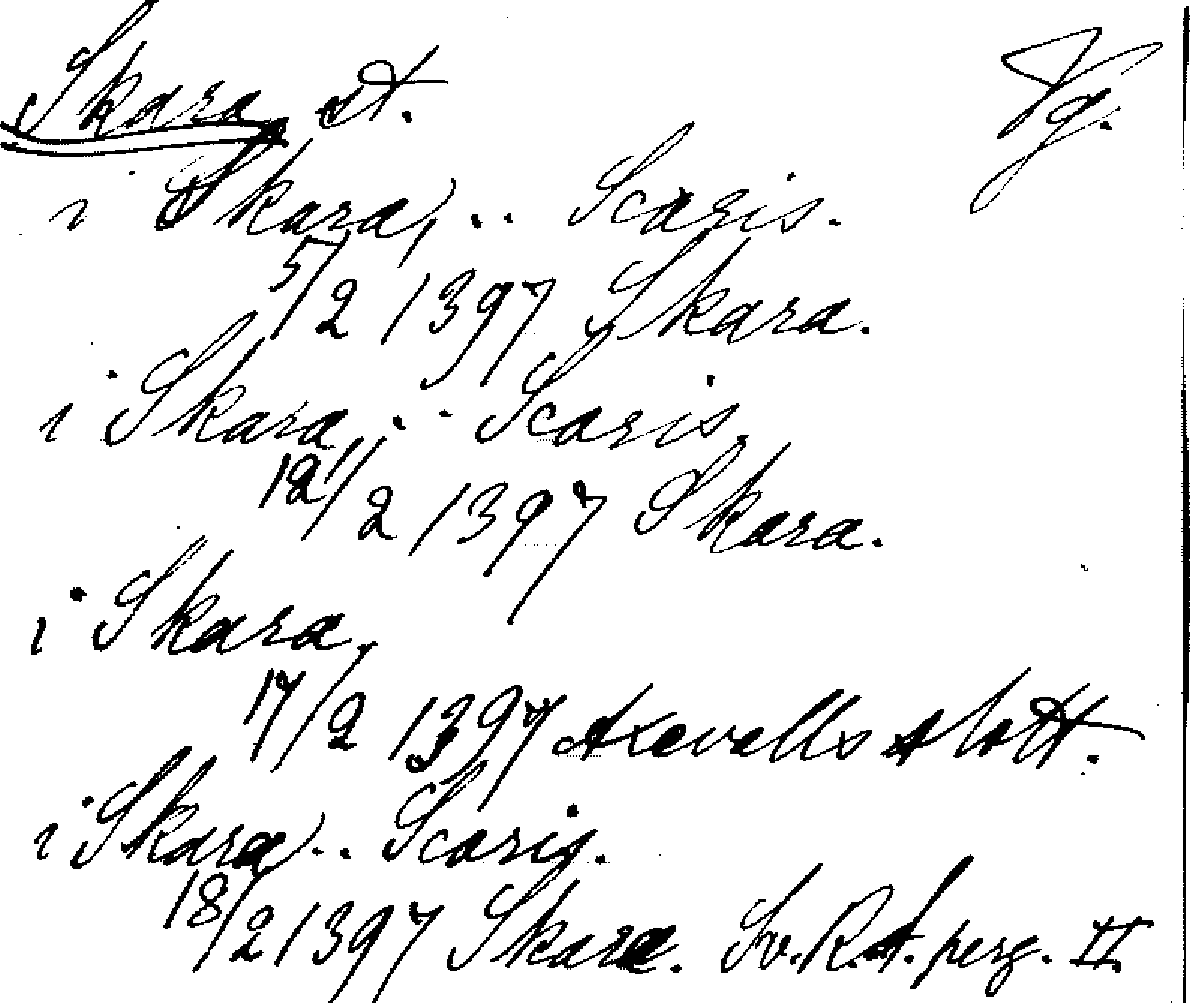 Skara, st. Vg.
i Skara, .. Scaris.
5/2 1397 Skara.
i Skara, .. Scaris.
12/2 1397 Skara.
i Skara,
17/2 1397 Axevalls slott.
i Skara, .. Scaris.
18/2 1397 Skara. Sv. R.A. perg. II.